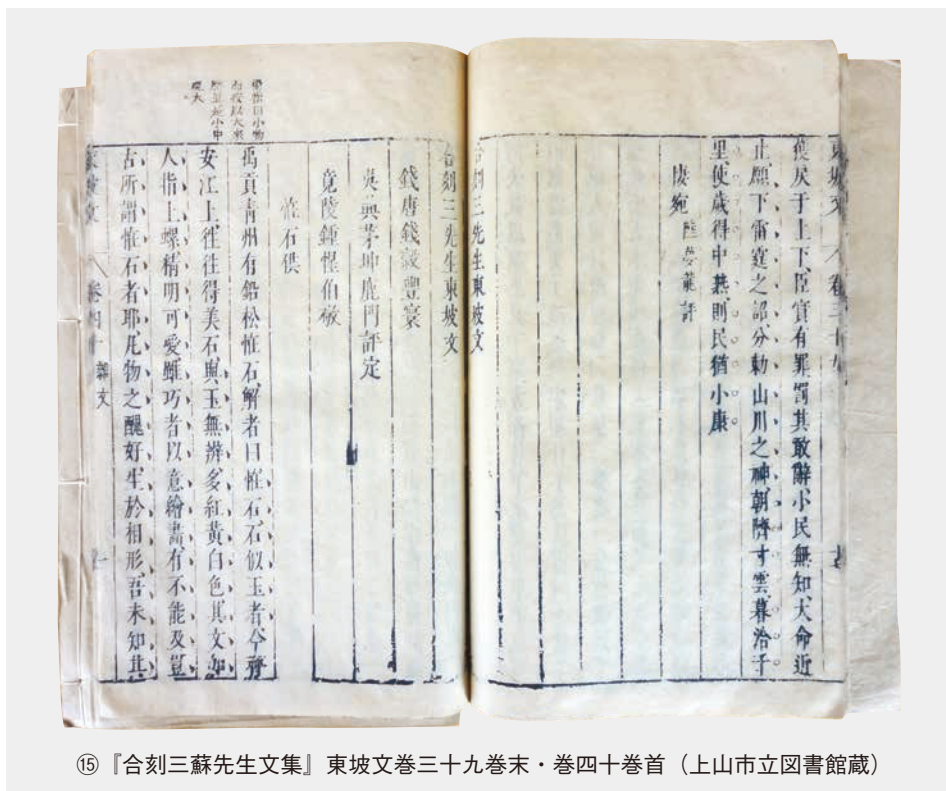 東坡文 卷三十九
獲戾于上下臣實有罪罰其敢辭小民無知大命近
止願下雷霆之詔分勅山川之神朝隮寸雲暮洽千
里使歲得中熟則民猶小康
悽宛 陸夢龍評
合刻三先生東坡文
合刻三先生東坡文
錢唐錢穀豐寰
吳興茅坤鹿門評定
竟陵鍾惺伯敬
恠石供
禹貢青州有鉛松恠石解者曰恠石石似玉者今齊
安江上往往得美石與玉無辨多紅黃白色其文如
人指上螺精明可愛雖巧者以意繪畫有不能及豈
古所謂恠石者耶凡物之醜好生於相形吾未知其
東坡文 卷四十 雜文 一
⑮『合刻三蘇先生文集』東坡文巻三十九巻末・巻四十巻首（上山市立図書館蔵）